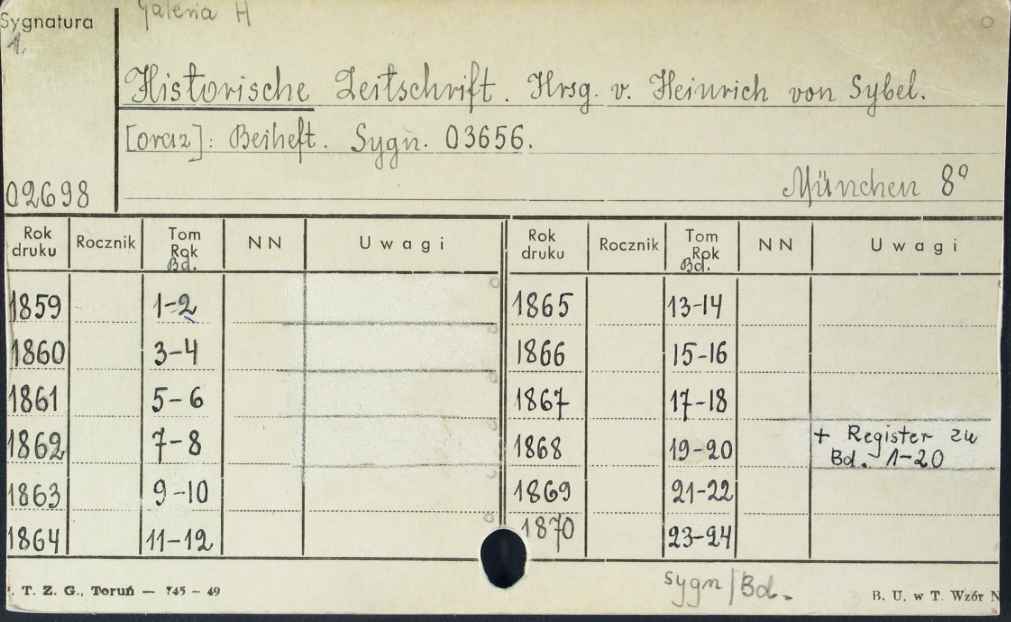 Galeria H
Sygnatura
1.
Historische Zeitschrift. Hrsg. v. Heinrich von Sybel.
[oraz]: Beiheft. Sygn. 03656.
02698
München 8°
Rok druku Rocznik Tom Rok Bd. NN Uwagi Rok druku Rocznik Tom Rok Bd. NN Uwagi
1859 1-2 1865 13-14
1860 3-4 1866 15-16
1861 5-6 1867 17-18
1862 7-8 1868 19-20 + Register zu
Bd. 1-20
1863 9-10 1869 21-22
1864 11-12 1870 23-24
T. Z. G., Toruń — 745 - 49
sygn/Bd.
B. U. w T. Wzór N